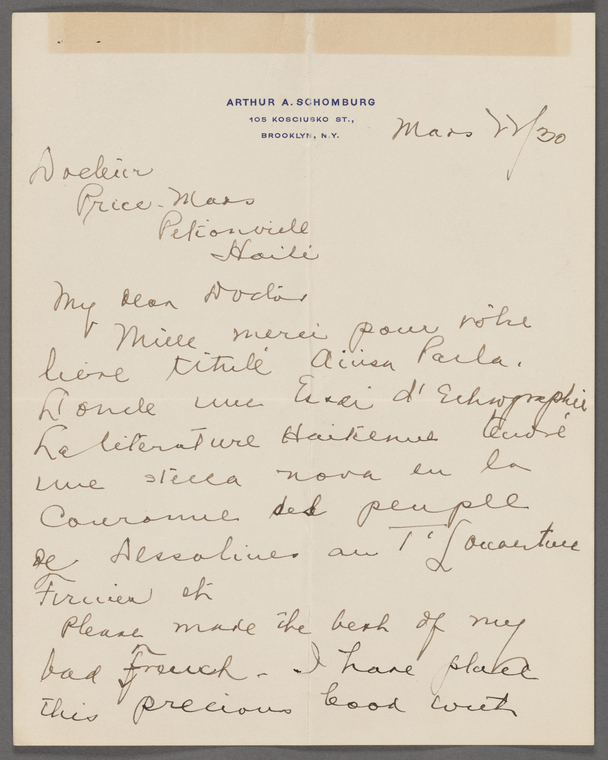 ARTHUR A. SCHOMBURG
105 KOSCIUSKO ST.,
BROOKLYN, N.Y.
Mars 22/30
Docteur
Price-Mars
Petionville
Haiti
My dear Doctor
Mille merci pour vôtre
livre titulé Ainsa Parla.
L'oncle une Essai d'Ethnographie
La literature Haitienne
une stella nova en la
Couronne del peuple
de Dessalines au T' Louverture
Firmin etc
Please made the best of my
bad French. I have place
this precious book with